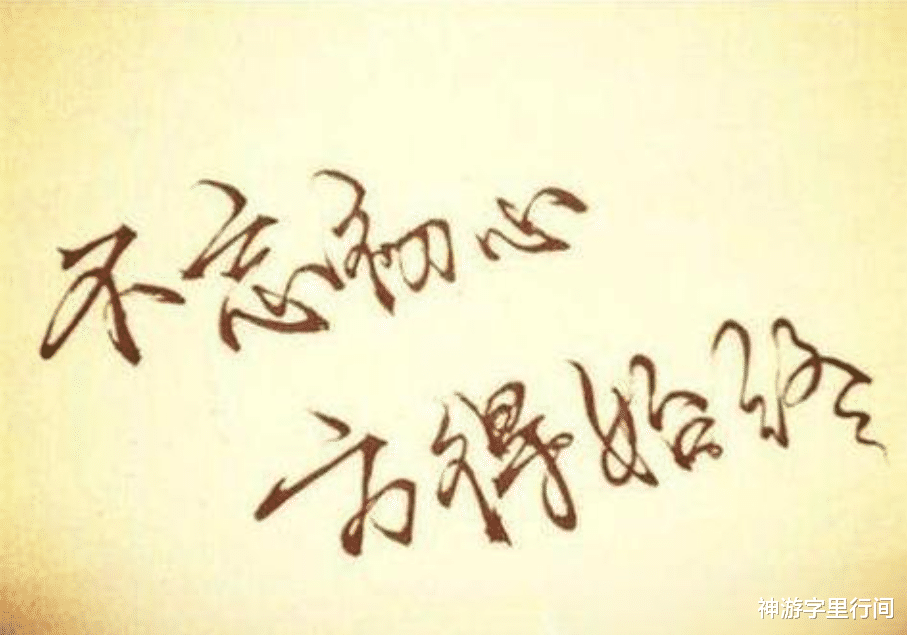 不忘初心
方得始终
神游字里行间